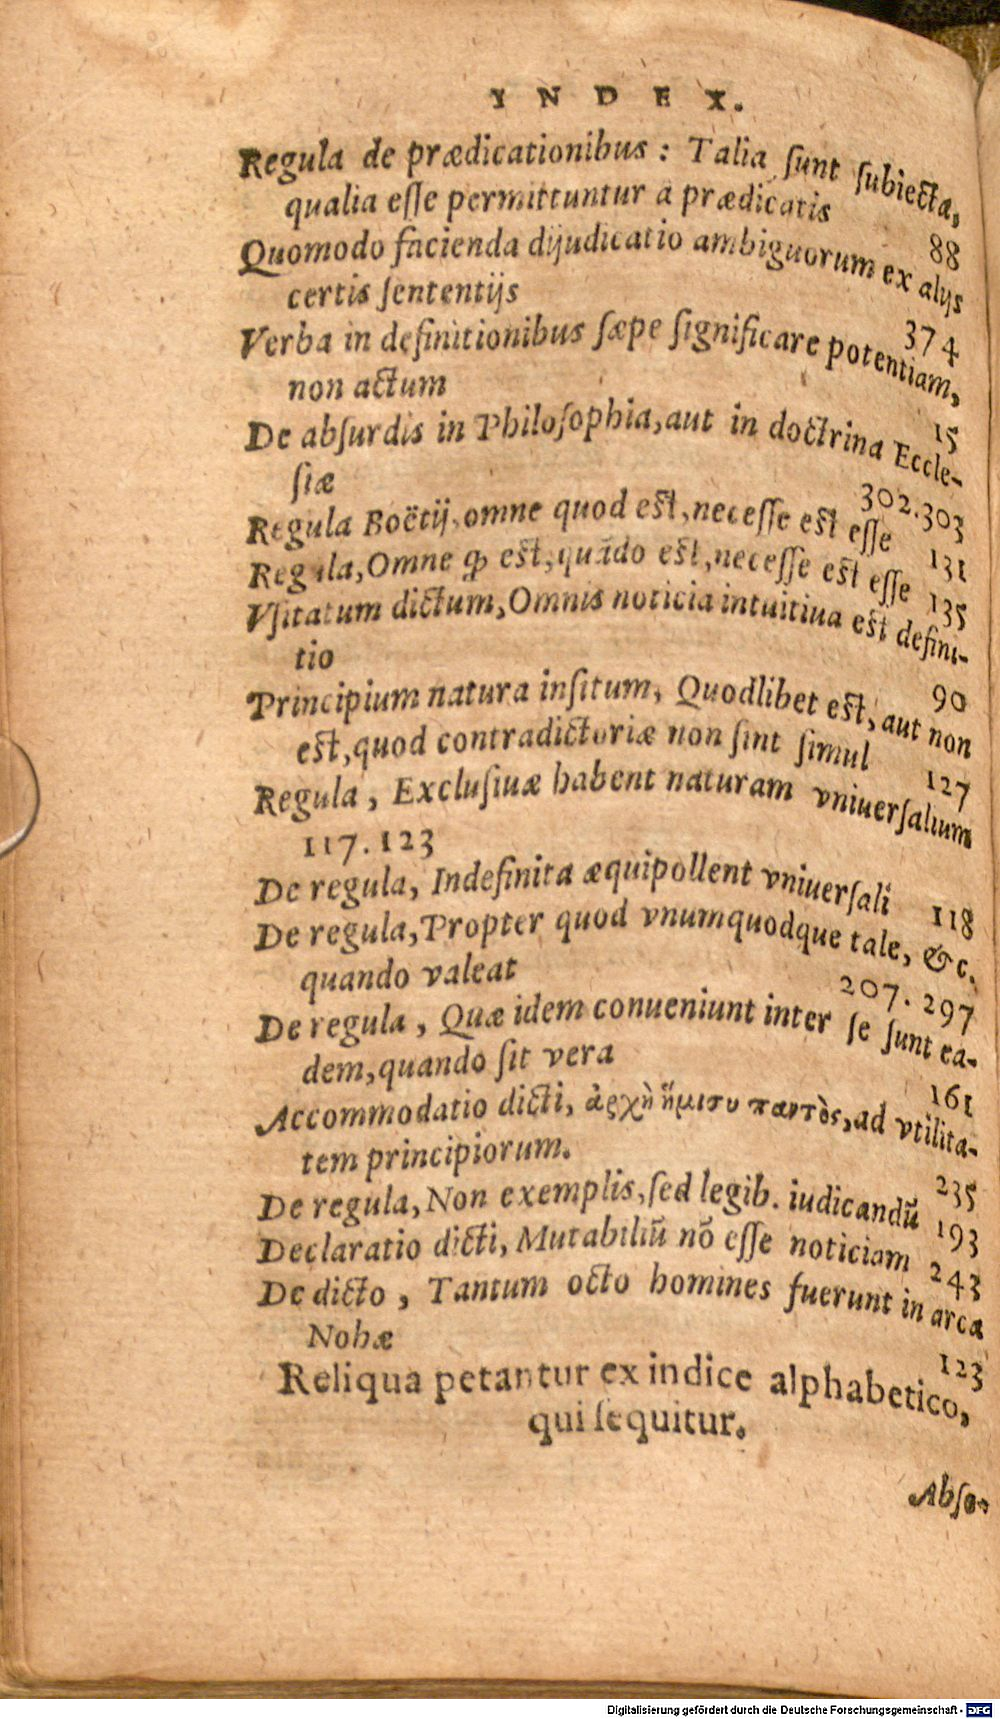 YNDEX.
Regula de prædicationibus: Talia ſunt ſubiecta,
qualia eſſe permittuntur à prædicatis 88
Quomodo facienda dijudicatio ambiguorum ex alijs
certis ſententijs 374
Verba in definitionibus ſæpe ſignificare potentiam,
non actum 15
De abſurdis in Philoſophia, aut in doctrina Eccle-
ſiæ 302.303
Regula Boëtij, omne quod est, neceſſe est eſſe 131
Regula, Omne qƺ est, quãdo est, neceſſe est eſſe 135
Vſitatum dictum, Omnis noticia intuitiua est defini-
tio 90
Principium natura inſitum, Quodlibet est, aut non
est, quod contradictoriæ non ſint ſimul 127
Regula, Excluſiuæ habent naturam vniuerſalium
117.123
De regula, Indefinita æquipollent vniuerſali 118
De regula, Propter quod vnumquodque tale, &c.
quando valeat 207. 297
De regula, Quæ idem conueniunt inter ſe ſunt ea-
dem, quando ſit vera 161
Accommodatio dicti, ἀρχὴ ἥμισυ παντὸς, ad vtilita-
tem principiorum. 235
De regula, Non exemplis, ſed legib. iudicandũ 193
Declaratio dicti, Mutabiliũ nõ eſſe noticiam 243
De dicto, Tantum octo homines fuerunt in arca
Nohæ 123
Reliqua petantur ex indice alphabetico,
qui ſequitur.
Abſo-
Digitalisierung gefördert durch die Deutsche Forschungsgemeinschaft - DFG